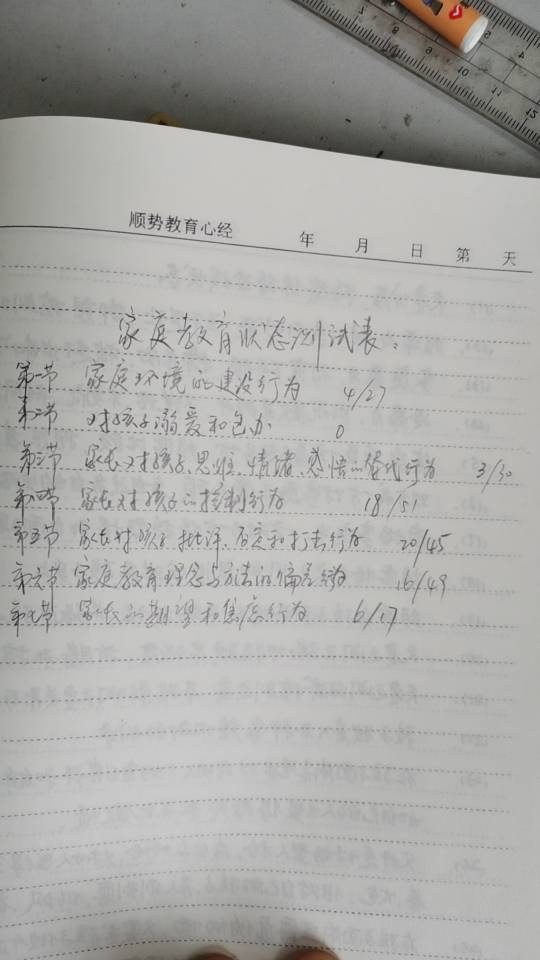 顺势教育心经 年 月 日 第 天
家庭教育状态测试表:
第一节 家庭环境的建设行为 4/27
第二节 对孩子溺爱和包办 0
第三节 家长对孩子思维、情绪、感悟的替代行为 3/30
第四节 家长对孩子的控制行为 18/51
第五节 家长对孩子批评、否定和打击行为 20/45
第六节 家庭教育理念与方法的偏差行为 16/49
第七节 家长的期望和焦虑行为 6/17